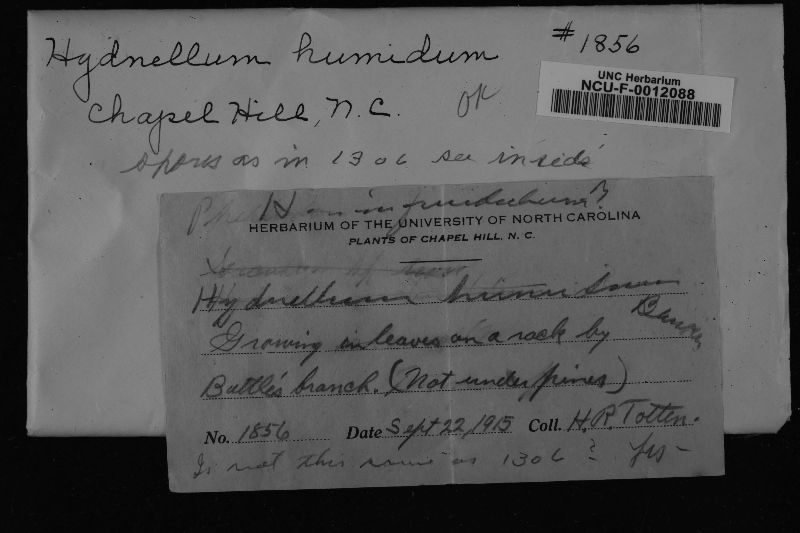 Hydnellum humidum # 1856
UNC Herbarium
NCU-F-0012088
Chapel Hill, N.C. OK
spores as in 1306 see inside
H
HERBARIUM OF THE UNIVERSITY OF NORTH CAROLINA
PLANTS OF CHAPEL HILL, N. C.
Hydnellum humidum
Growing in leaves on a rock by
Battle's branch. (Not under pines)
No. 1856 Date Sept 22, 1915 Coll. H. R. Totten.
Is not this same as 1306? Yes -